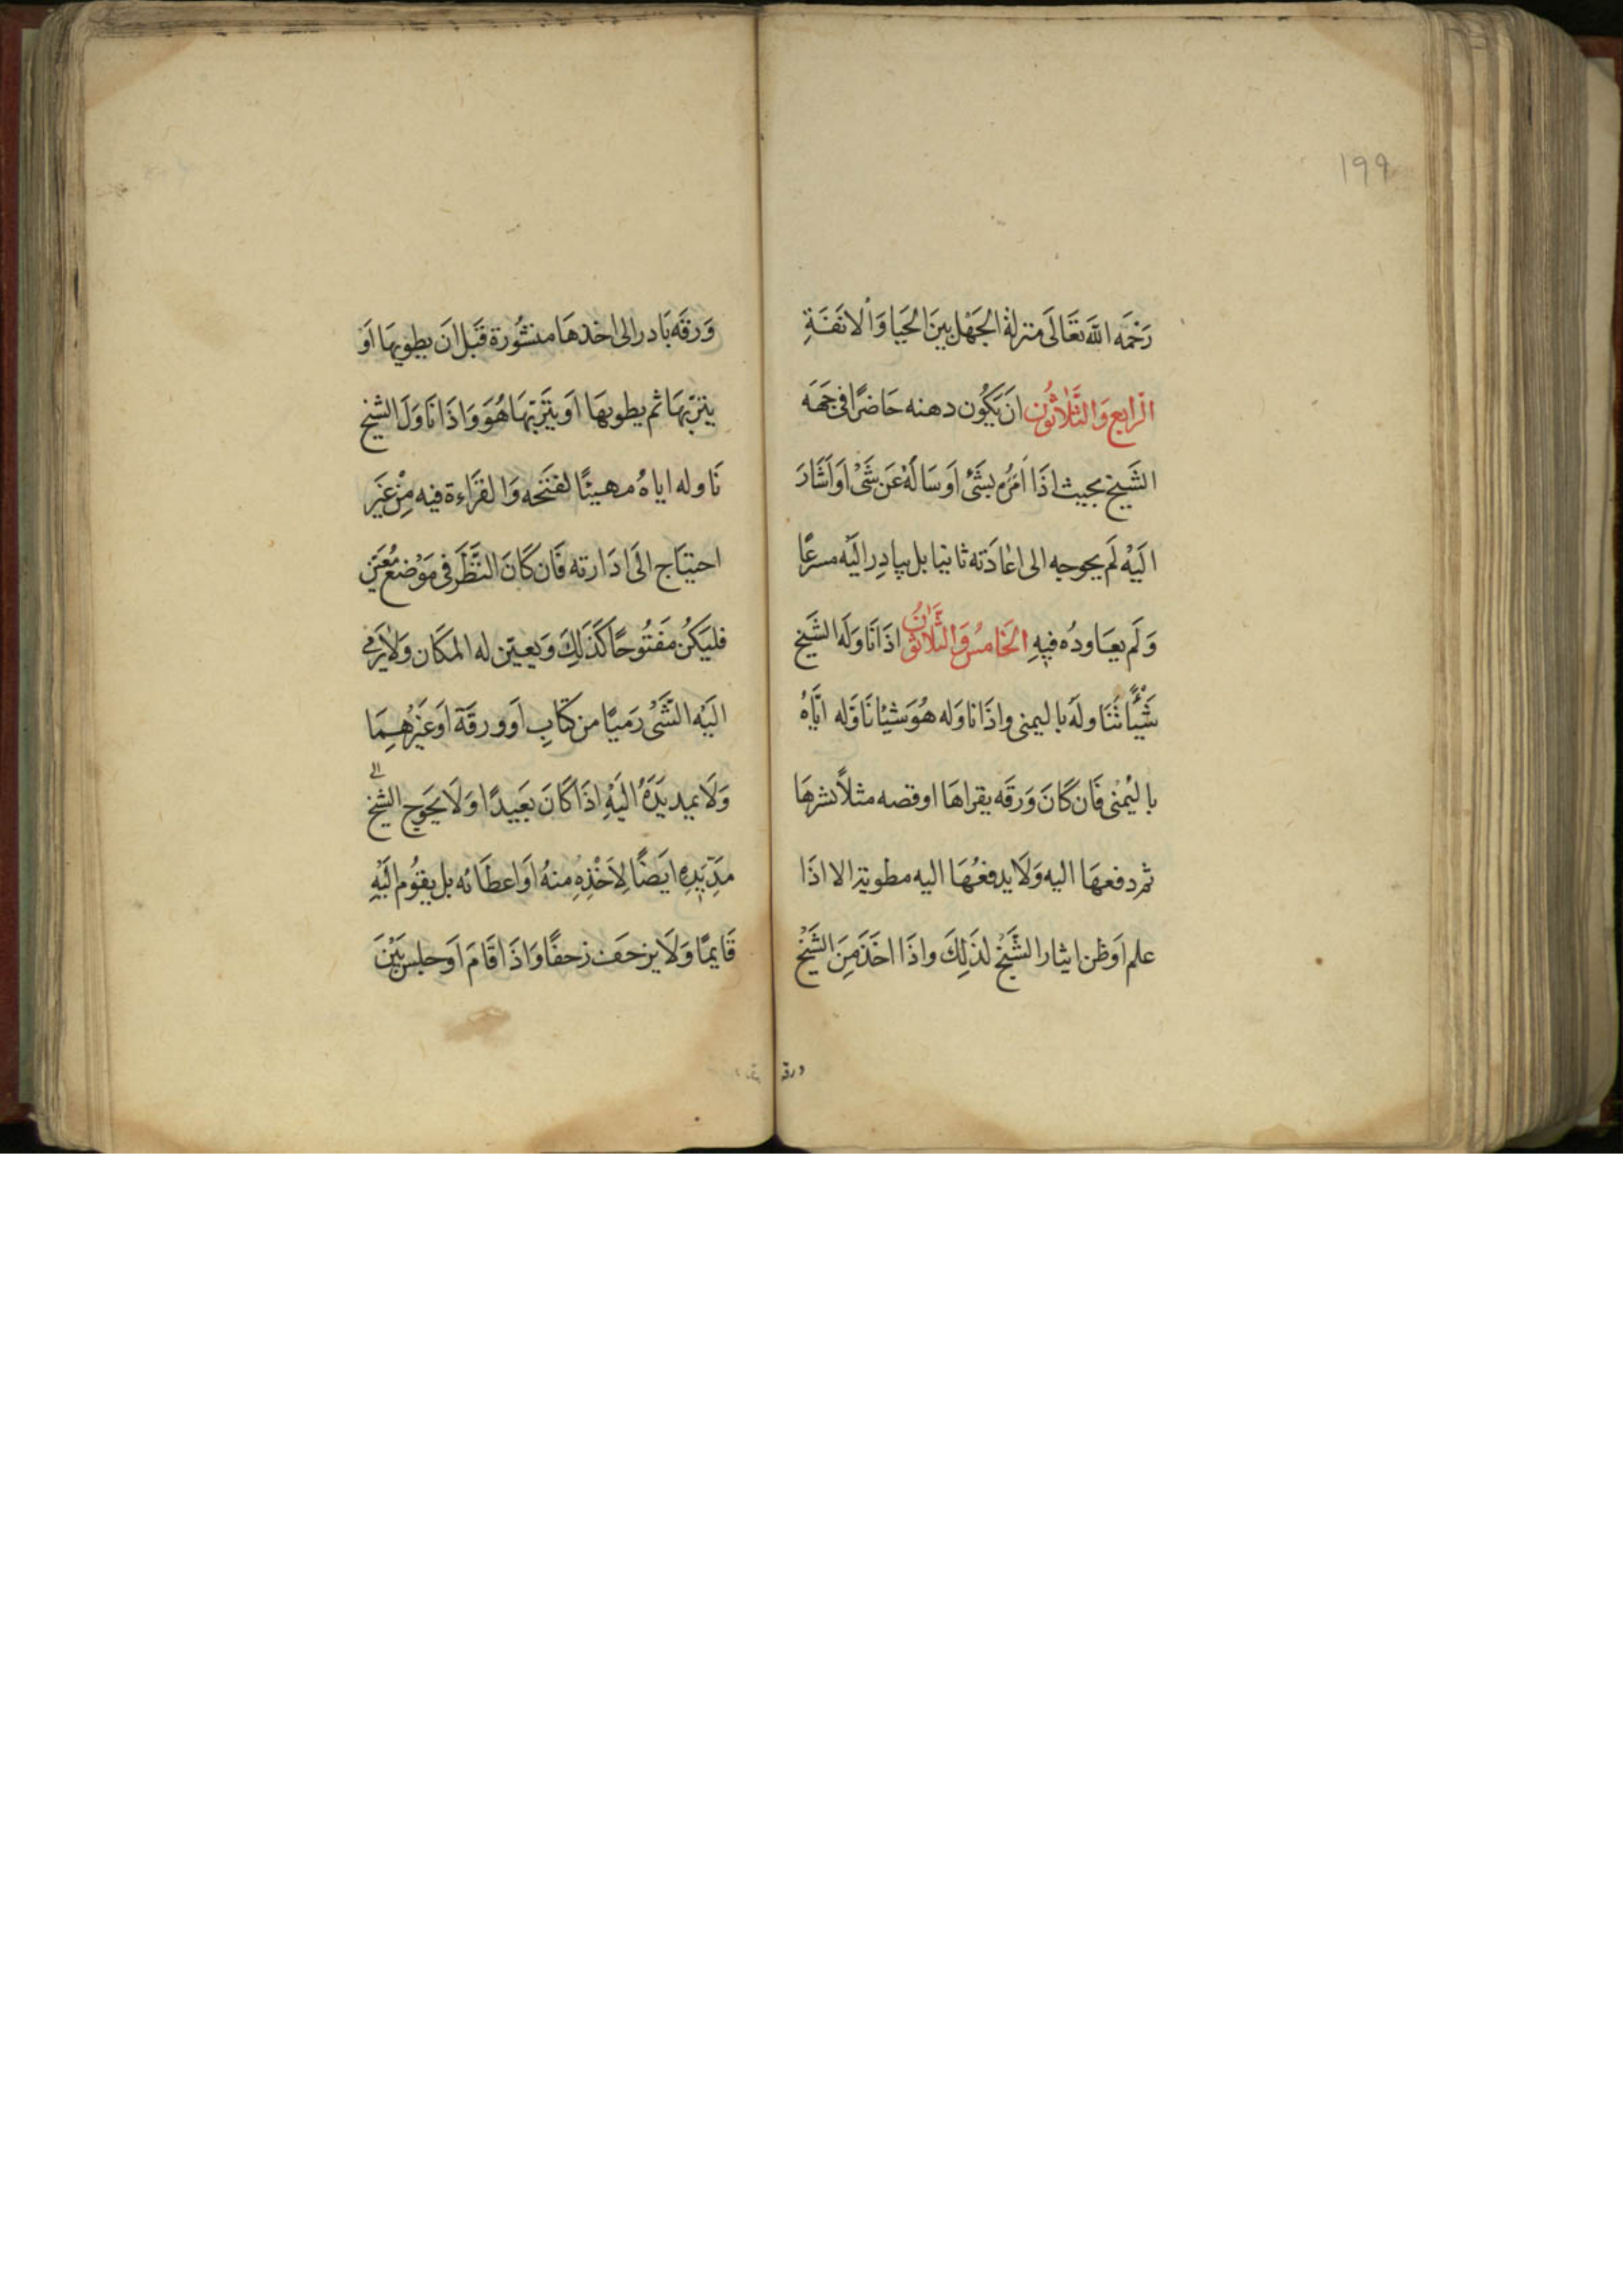 ١٩٩
رَحْمَه اللّهَ تَعَالَى منزلة الجَهْل بينَ الحَيَا وَالْانَفَةِ
الرابع وَالثَّلاثُون ان يَكُون دهنه حَاضرًا فى جَهَه
الشَيخ بحيث اذَا اَمَرُه بشَئ اَوسَالَهُ عَن شَىْ اَو اَشَارَ
اليَهْ لَم يحوجه الى اعَادَته ثانيا بل يبادِر اليَه مسرعًا
وَلَم يعَاودُه فيهِ الخامسُ وَالثلاثوَنُ اذَا نَاوَلَه الشَيخ
شَيْأً تَنَاولَه باليمنى واذَا ناوَله هُوَ شيئا نَاوَله ايَّاهُ
باليُمْنى فَان كَانَ وَرقَه يقراهَا اوقصه مثلاً نشرهَا
ثم دفعهَا اليه وَلَا يدفعُهَا اليه مطوية الا اذَا
علم اَوظن ايثار الشَّيْخ لذَلِكَ واذَا اخَذَ مِنَ الشَيْخ
ورقه
وَرقَه بَادر الى اخذهَا منشُورة قَبْل انَ يطويهَا اَوْ
يتربهَا ثم يطويهَا اوَ يتَربهَا هُوَ وَاذَا نَاوَلَ الشيخ
نَاوله اياهُ مهيئًا لفتحه وَالقرَاءة فيه مِنْ غَيرَ
احتيَاج الَى ادَارته فَان كَانَ النَّظَر فى مَوْضع مُعَيَّن
فليَكُن مَفتُوحًا كَذَلِكَ وَيعين له المكَان وَلَا يَرمى
اليَهْ الشَّىْ رَميًا من كتَابِ اَو ورقَة اَوغَيْرهِمَا
وَلَا يمد يَدَهُ اليَهْ اذَا كَانَ بَعَيدًا وَلَا يحَوج الشَيخ الى
مَدّ يَدِه ايَضًا لِاَخْذِهِ منهُ اوَ اعطَائه بل يقوُم اليَهِ
قَايمًا وَلَا يزحَف زحفًا وَاذَا قَامَ اوَ جلس بَيْنَ